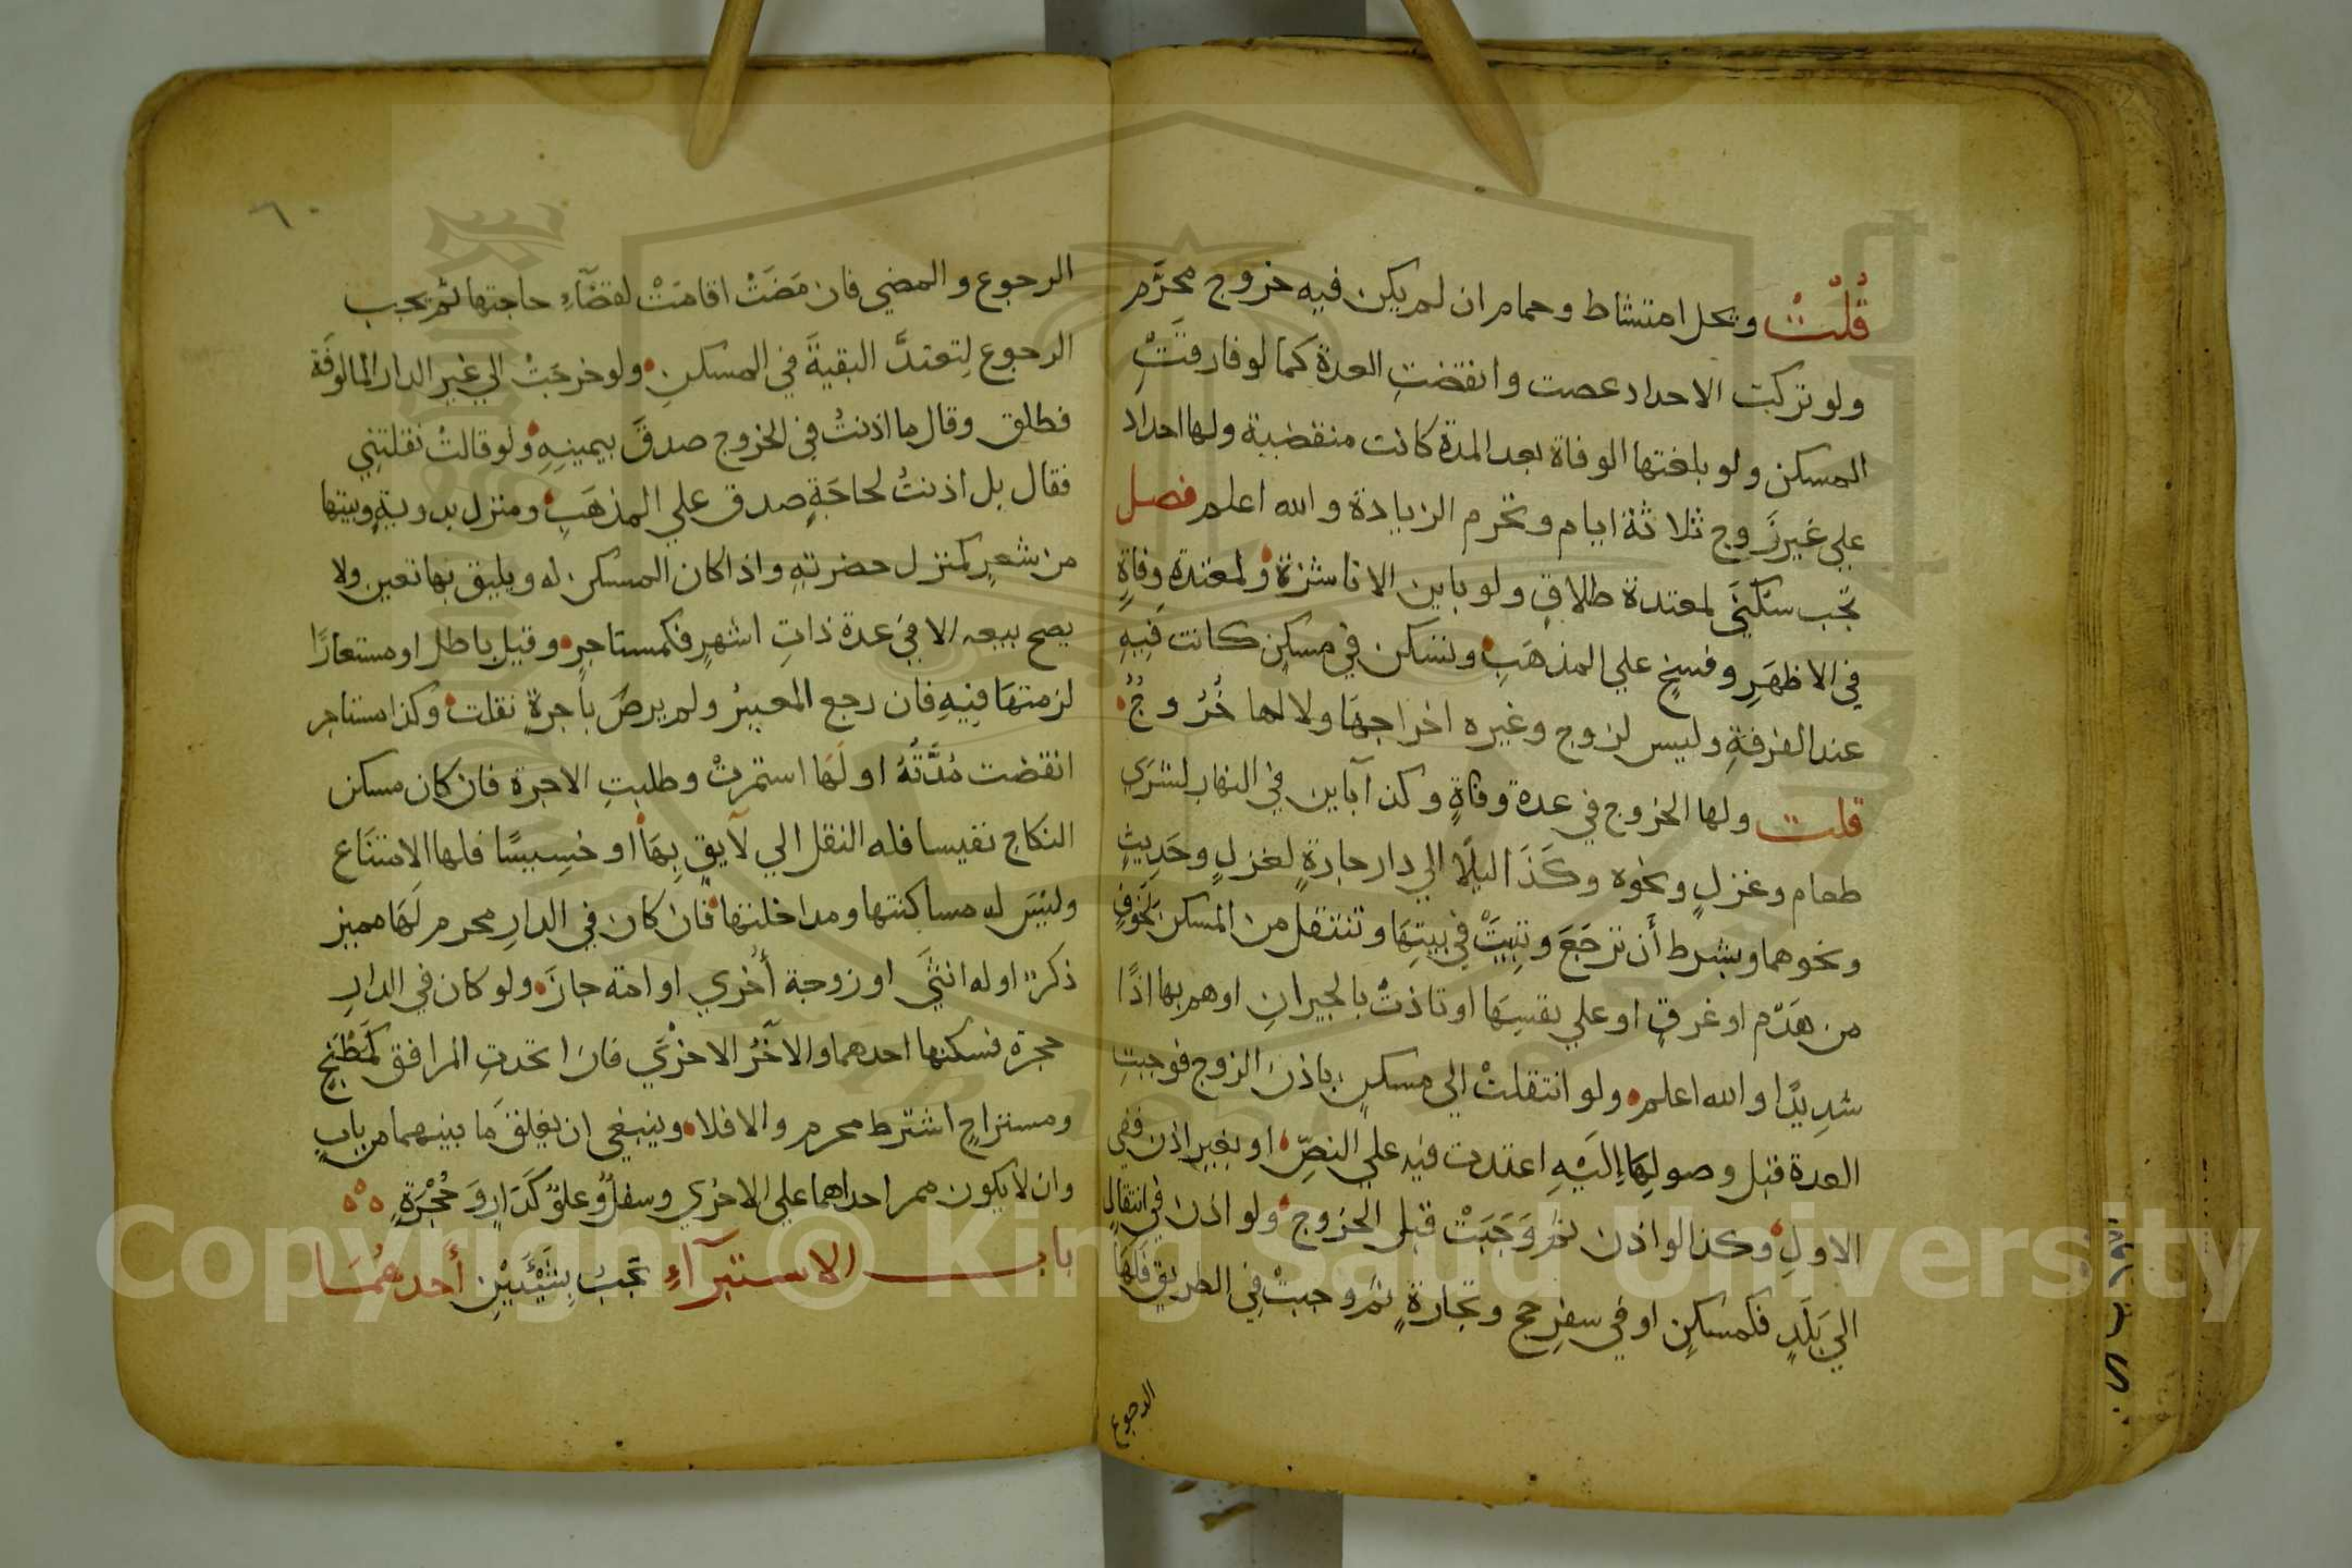 قُلْتُ ويحل امتشاط وحمام ان لم يكن فيه خروج محرَّم
ولو تركت الاحداد عصت وانقضتِ العدة كما لو فارقتَتِْ
المسكن ولو بلغتها الوفاة بعد المدة كانت منقضية ولها احداد
علي غير زَوج ثلاثة ايام وتحرم الزيادة والله اعلم فصل
تجب سكنيَ لمعتدة طلاقٍ ولو باين الا ناشزة ولمعتدةِ وفاةٍ
في الاظهَرِ وفسخٍ علي المذهَبِ وتسكن في مسكنٍ كانت فيهِ
عند الفرقةِ وليس لزوج وغيره اخراجهَا ولا لها خُرُوجُ
قلت ولها الخروج في عدة وفاةٍ وكذا باين في النهار لشرَي
طعام وغزلٍ ونحوه وكَذَا ليلًا الي دار جارةٍ لغزلٍ وحَدِيثٍ
ونحوهما وبشرط أن ترجَعَ وتبِيتَْ في بيتِهَا وتنتقل من المسكن لخَوفٍ
من هَدْم او غرقٍ او علي نفسِهَا او تاذتْ بالجيرانِ او هم بها اذًا
شدِيدًا والله اعلم ولو انتقلتْ الي مسكنٍ باذن الزوج فوجبتِ
العدة قبل وصولِهَا إليَْهِ اعتدت فيه علي النصِّ او بغير اذن ففي
الاولِ وكذا لو اذن ثم وَجَبَتْ قبل الخروج ولو اذن في انتقالٍ
الي بَلَدٍ فكمسكنٍ او في سفرِ حج وتجارةٍ ثم وجبتْ في الطريق فلهَا
الرجوع
٦٠
الرجوع والمضي فان مَضَتْ اقامَتْ لقضَآءِ حاجتها ثم يجب
الرجوع لِتعتدَّ البقيةَ في المسكنِ ولو خرجَتْ الي غير الدار المالوفَة
فطلق وقال ما اذنتُ في الخروج صدقَ بيمينِهِ ولو قالتْ نقلتنِي
فقال بل اذنتُ لحاجَةٍ صدق علي المذهَبِ ومنزل بدويةٍ وبيتها
من شعرٍ كمنزل حضرتهِ واذا كان المسكن له ويليق بها تعين ولا
يصح بيعه الا في عدة ذاتِ اشهرٍ فكمستاجرٍ وقيل باطل او مستعارًا
لزمتهَا فيهِ فان رجع المعيرُ ولم يرضَ باجرةٍ نقلت وكذا مستاجر
انقضت مُدَّتُهُ او لَهَا استمرتْ وطلبتِ الاجرة فان كان مسكن
النكاح نفيسا فله النقل الي لآيقٍ بِهَا او خسِيسًا فلها الامتنَاع
وليْسَ له مساكنتها ومداخلتها فان كان في الدارِ محرم لَهَا مميز
ذكرٌ او له انثيَ او زوجة أُخري او امة جازَ ولو كان في الدارِ
حجرة فسكنها احدهما والاخَرُ الاخرَي فان اتحدتِ المرافق كَمَطْبَخٍ
ومستراحٍ اشترط محرم والا فلا وينبغي ان يغلقَ مَا بينهما من بابٍ
وان لا يكون ممر احداهما علي الاخري وسفلٌ وعلوٌ كَدَارٍ وَحُجْرَةٍ
باب الاستبرآءِ تجبُ بِشَيْئَيْنِ أَحدهُمَا
Copyright © King Saud University